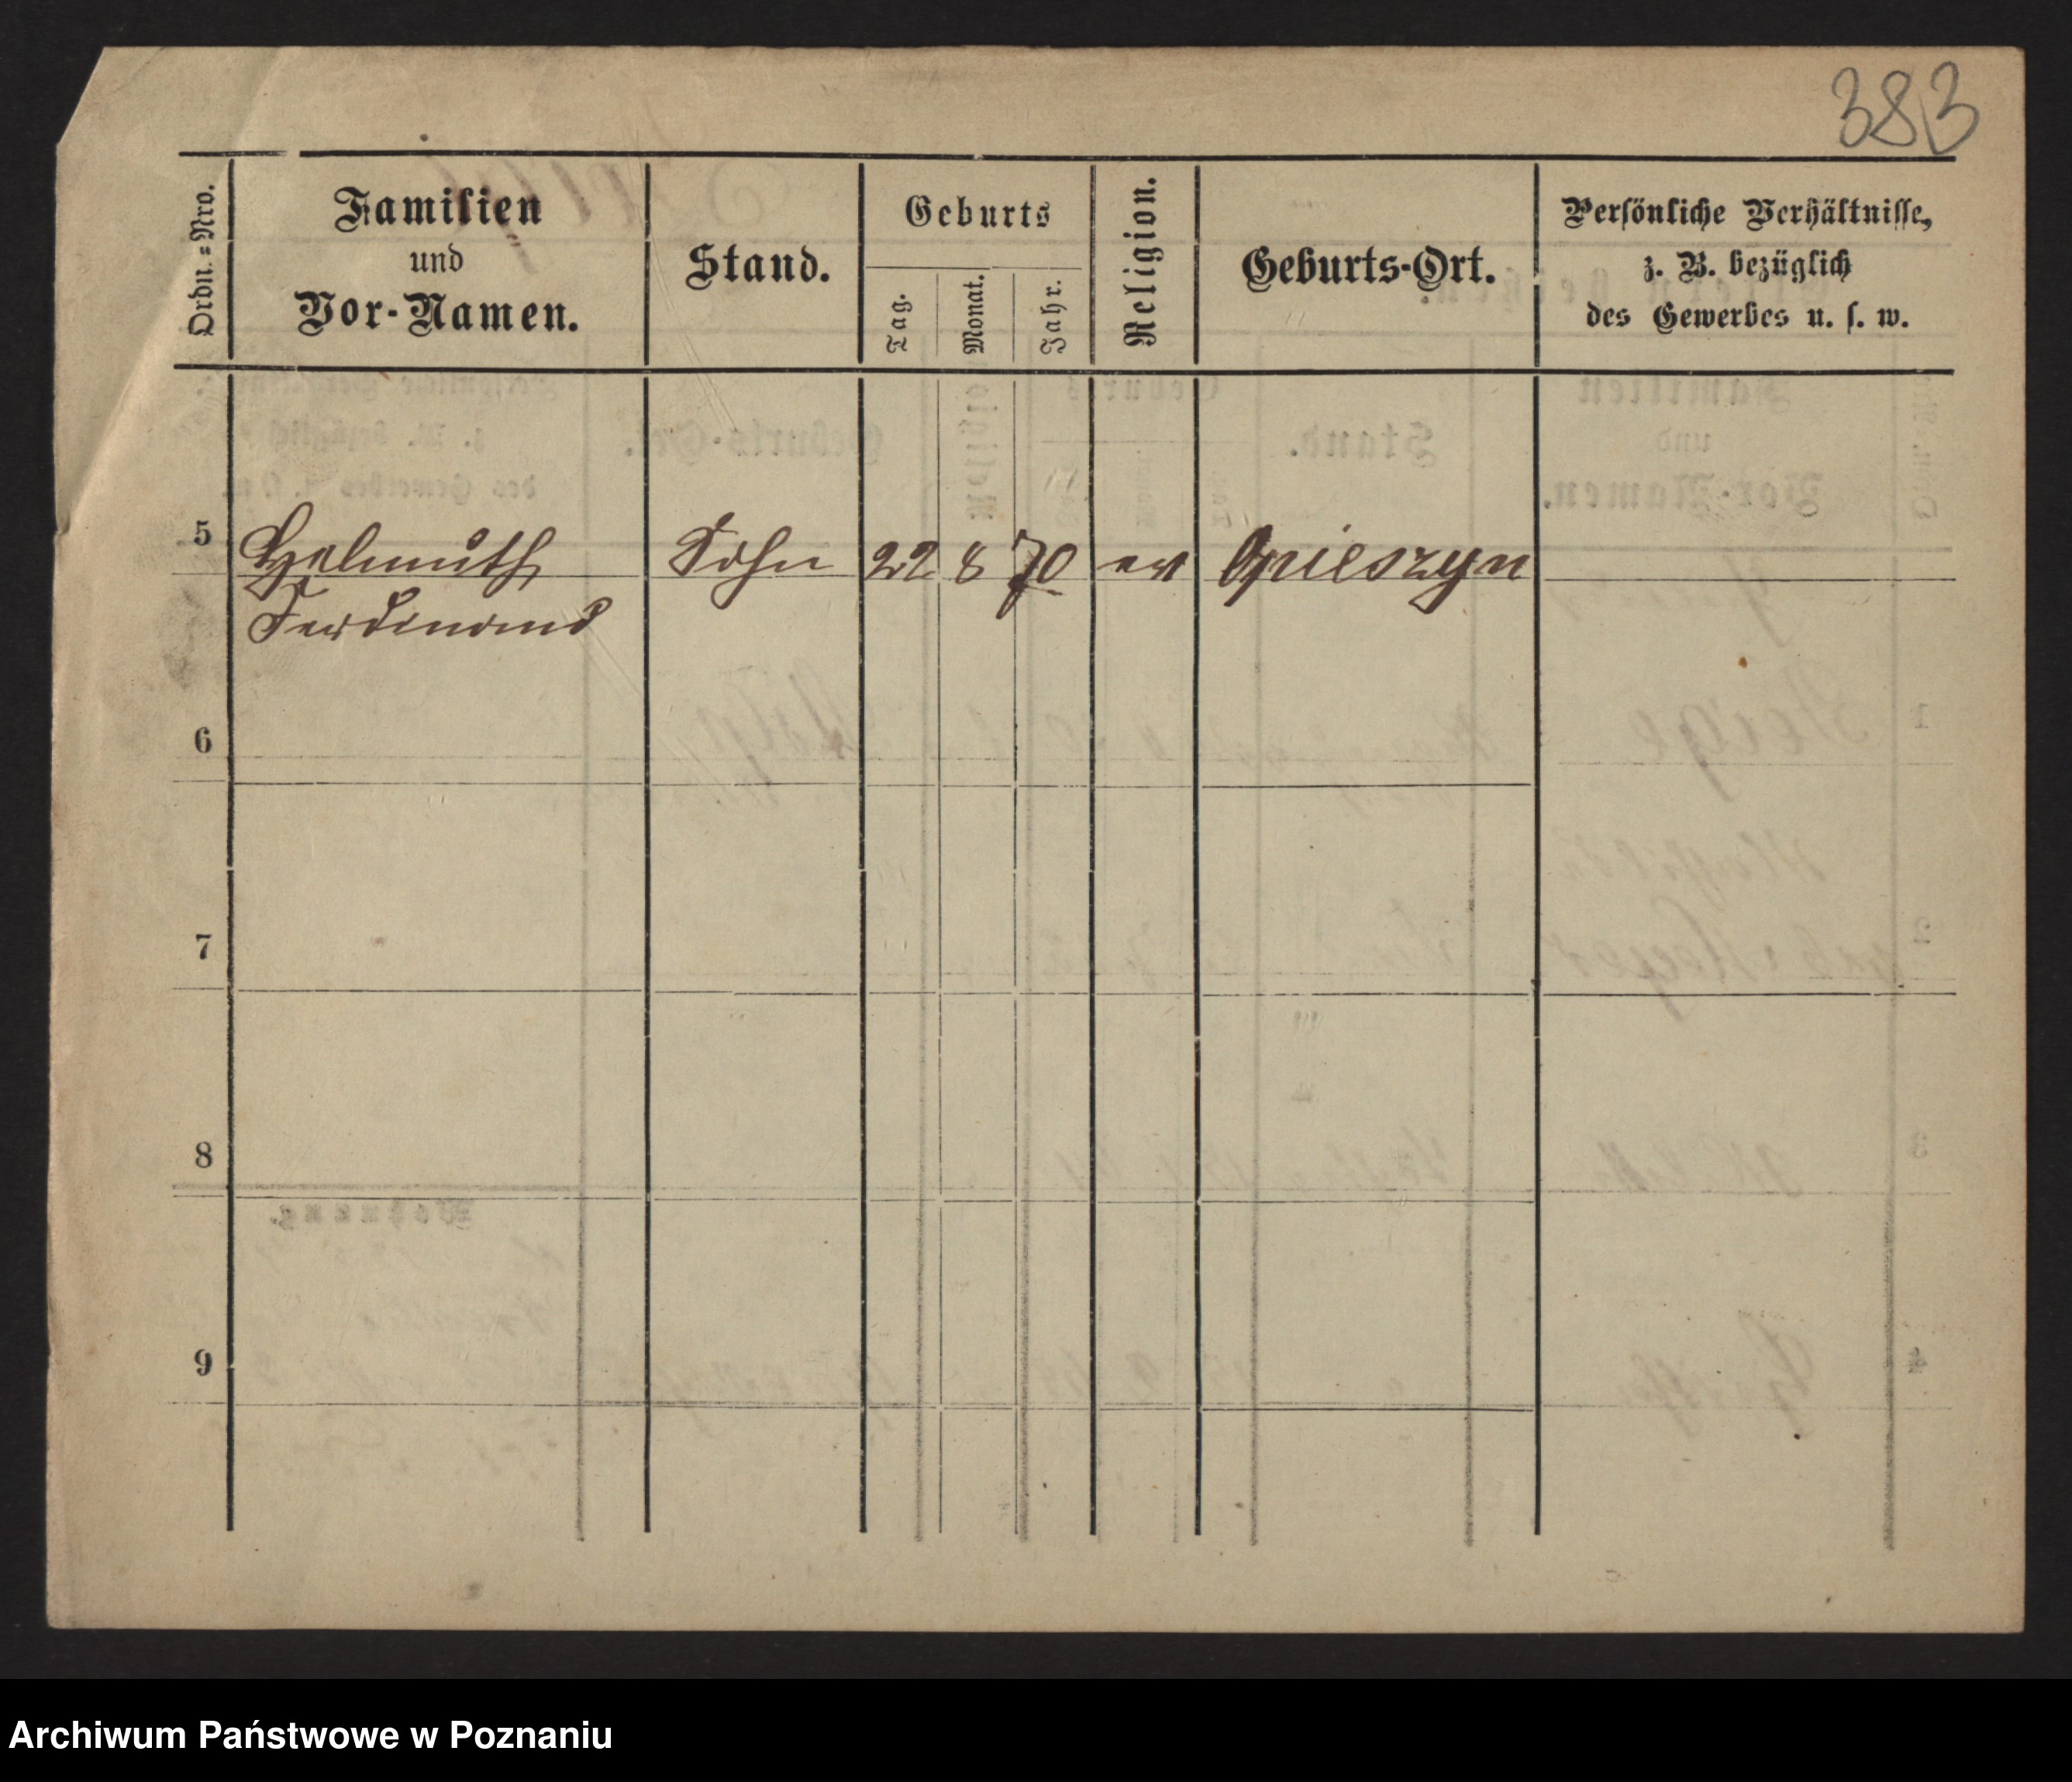 383
Ordn.=Nro.
Familien
und
Vor-Namen.
Stand.
Geburts
Tag.
Monat.
Jahr.
Religion.
Geburts-Ort.
Persönliche Verhältnisse,
z. B. bezüglich
des Gewerbes u. s. w.
5 Helmuth Sohn 22 8 70 ev
Ferdinand
6
7
8
9
Archiwum Państwowe w Poznaniu